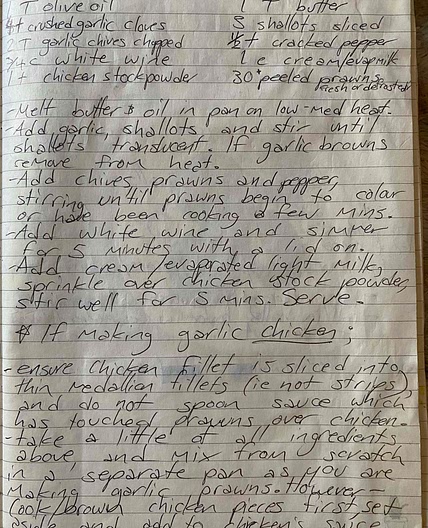 T olive oil 1 T butter
4t crushed garlic cloves 3 shallots sliced
2T garlic chives chopped 1/2t cracked pepper
3/4c white wine 1 c cream/evap milk
1t chicken stock powder 30 peeled prawns
fresh or defrosted
-Melt butter & oil in pan on low-med heat.
-Add garlic, shallots and stir until
shallots translucent. If garlic browns
remove from heat.
-Add chives, prawns and pepper,
stirring until prawns begin to color
or have been cooking a few mins.
-Add white wine and simmer
for 5 minutes with a lid on.
-Add cream/evaporated light milk,
sprinkle over chicken stock powder
stir well for 5 mins. Serve.
* If making garlic chicken;
-ensure chicken fillet is sliced into
thin medallion fillets (ie not strips)
and do not spoon sauce which
has touched prawns over chicken.
-take a little of all ingredients
above, and mix from scratch
in a separate pan as you are
making garlic prawns. However-
cook/brown chicken pieces first, set
aside and add to chicken's sauce